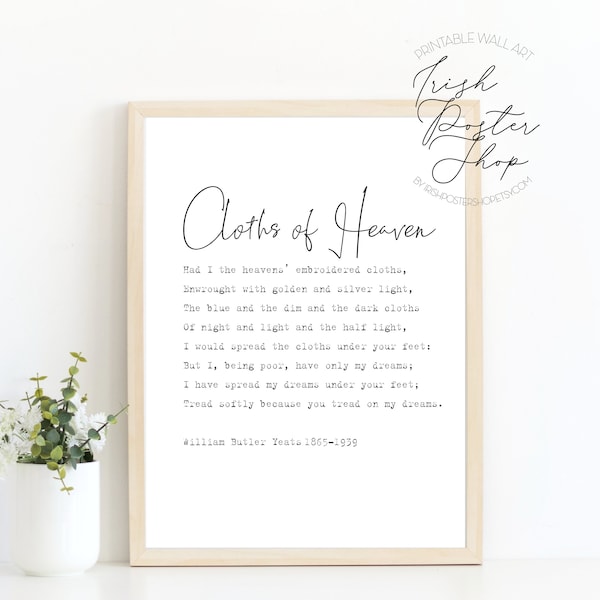 PRINTABLE WALL ART
Irish
Poster
Shop
BY IRISHPOSTERSHOP.ETSY.COM
Cloths of Heaven
Had I the heavens' embroidered cloths,
Enwrought with golden and silver light,
The blue and the dim and the dark cloths
Of night and light and the half light,
I would spread the cloths under your feet:
But I, being poor, have only my dreams;
I have spread my dreams under your feet;
Tread softly because you tread on my dreams.
William Butler Yeats 1865-1939